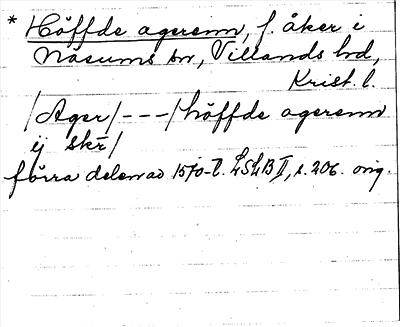 * Höffde agerenn, f. åker i
Näsums sn, Villands hd,
Krist. l.
/Ager/---/höffde agerenn
ij skr/
förra delen av 1570-t. LSLB II, s. 206. orig.